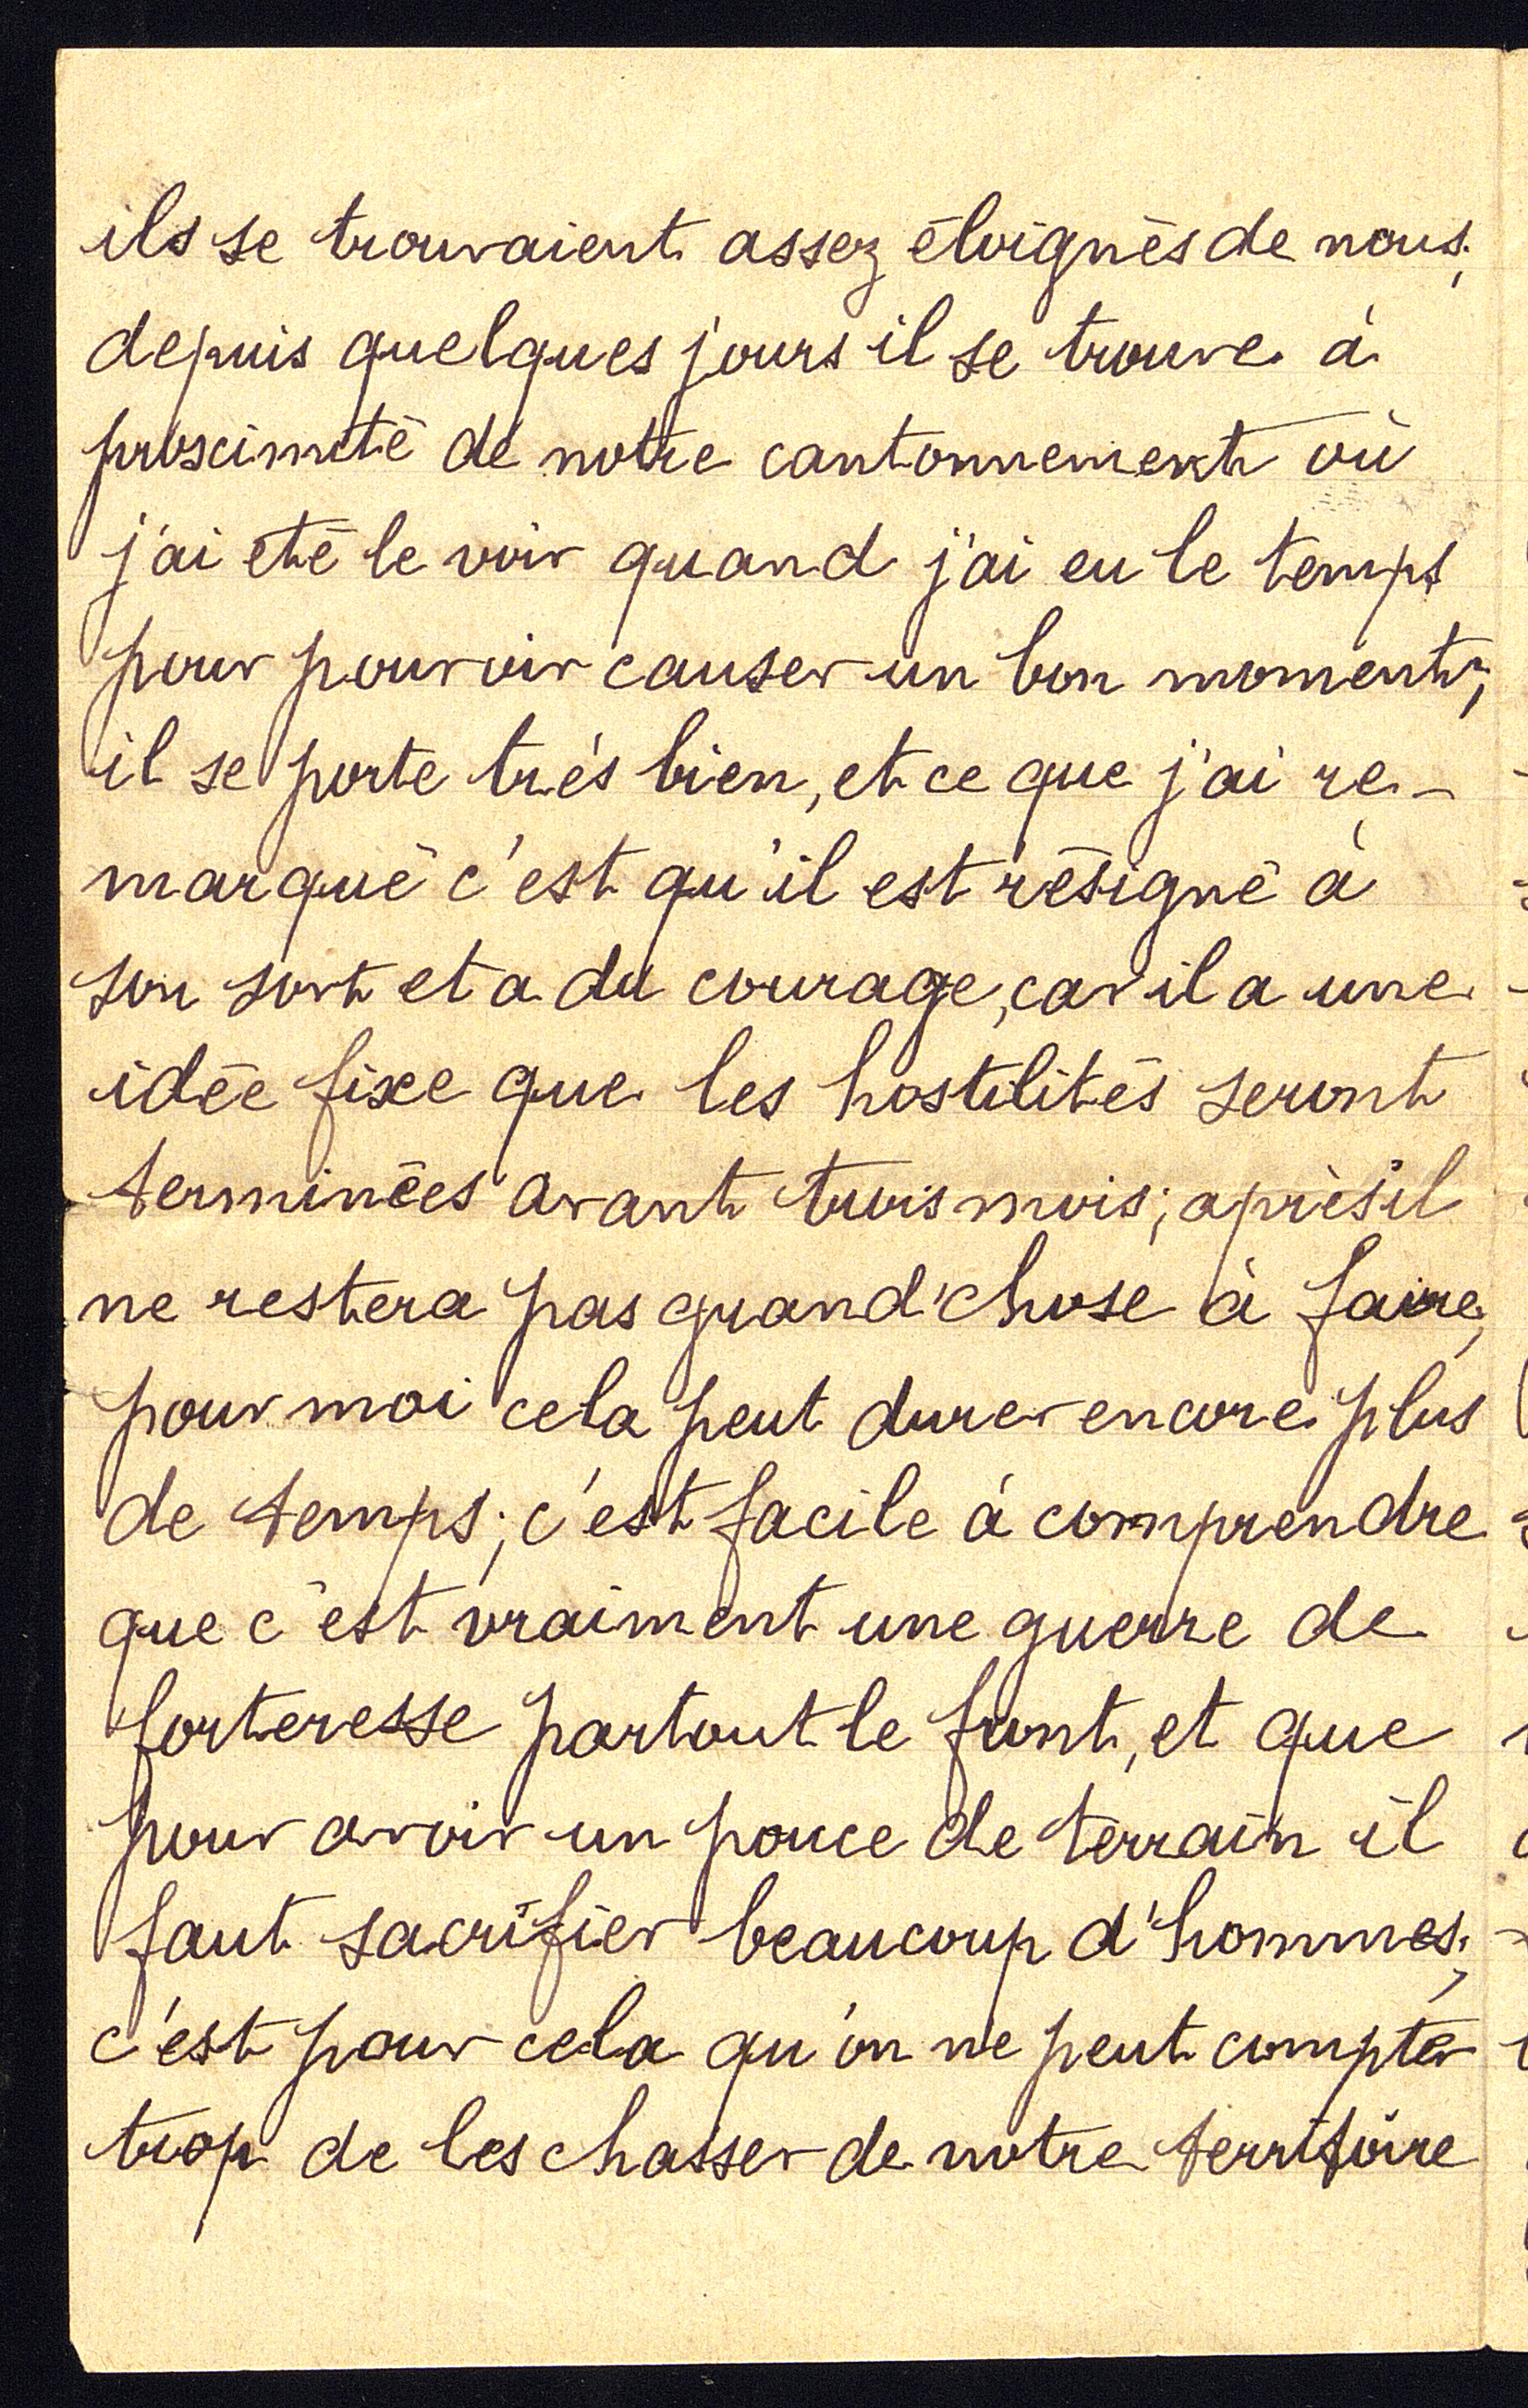 ils se trouvaient assez éloignés de nous;
depuis quelques jours il se trouve à
proximité de notre cantonnement où
j'ai été le voir quand j'ai eu le temps
pour pouvoir causer un bon moment;
il se porte très bien, et ce que j'ai re-
marqué c'est qu'il est résigné à
son sort et a du courage, car il a une
idée fixe que les hostilités seront
terminées avant trois mois; après il
ne restera pas grand'chose à faire;
pour moi cela peut durer encore plus
de temps; c'est facile à comprendre
que c'est vraiment une guerre de
forteresse partout le front, et que
pour avoir un pouce de terrain il
faut sacrifier beaucoup d'hommes;
c'est pour cela qu'on ne peut compter
trop de les chasser de notre territoire